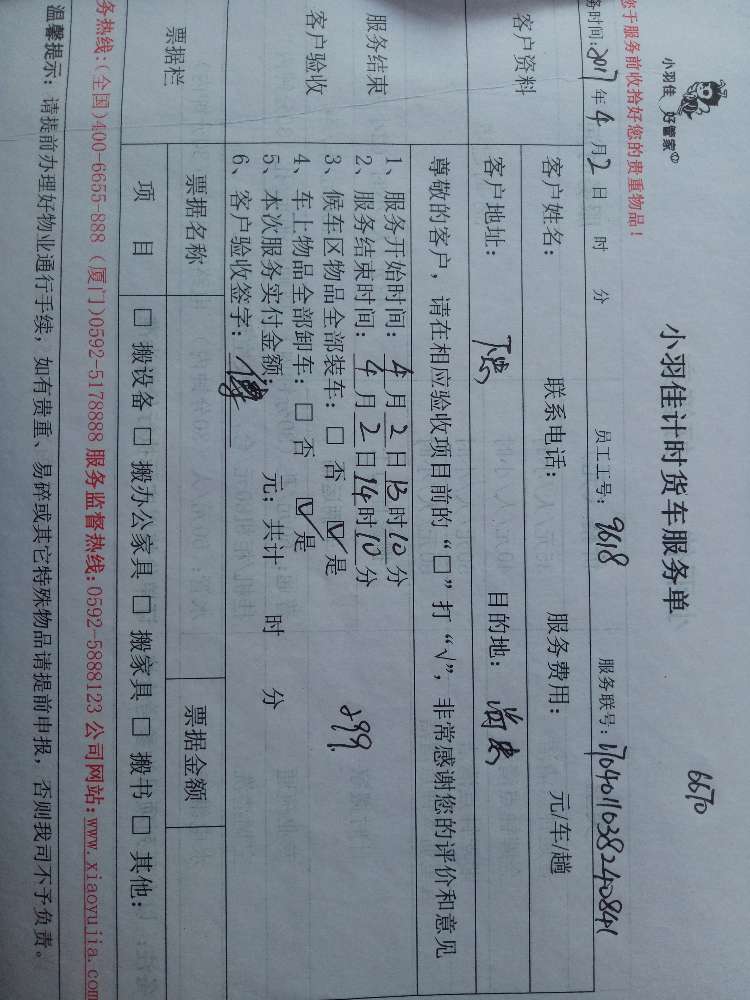 6670
小羽佳 好管家
小羽佳计时货车服务单
您于服务前收拾好您的贵重物品！
务时间：2017年4月2日 时 分 员工工号：9618 服务联号：170401103824084
客户资料 客户姓名： 联系电话： 服务费用： 元/车/趟
客户地址： 目的地：
服务结束
客户验收
尊敬的客户，请在相应验收项目前的“□”打“√”，非常感谢您的评价和意见
1、服务开始时间：4月2日13时10分
2、服务结束时间：4月2日14时10分
3、候车区物品全部装车：□ 否 ☑ 是 299
4、车上物品全部卸车：□ 否 ☑ 是
5、本次服务实付金额： 元；共计 时 分
6、客户验收签字：
票据栏 票据名称 票据金额
项 目 □ 搬设备 □ 搬办公家具 □ 搬家具 □ 搬书 □ 其他：
务热线：(全国)400-6655-888（厦门)0592-5178888 服务监督热线:0592-5888123 公司网站:www.xiaoyujia.com
温馨提示：请提前办理好物业通行手续，如有贵重、易碎或其它特殊物品请提前申报，否则我司不予负责。